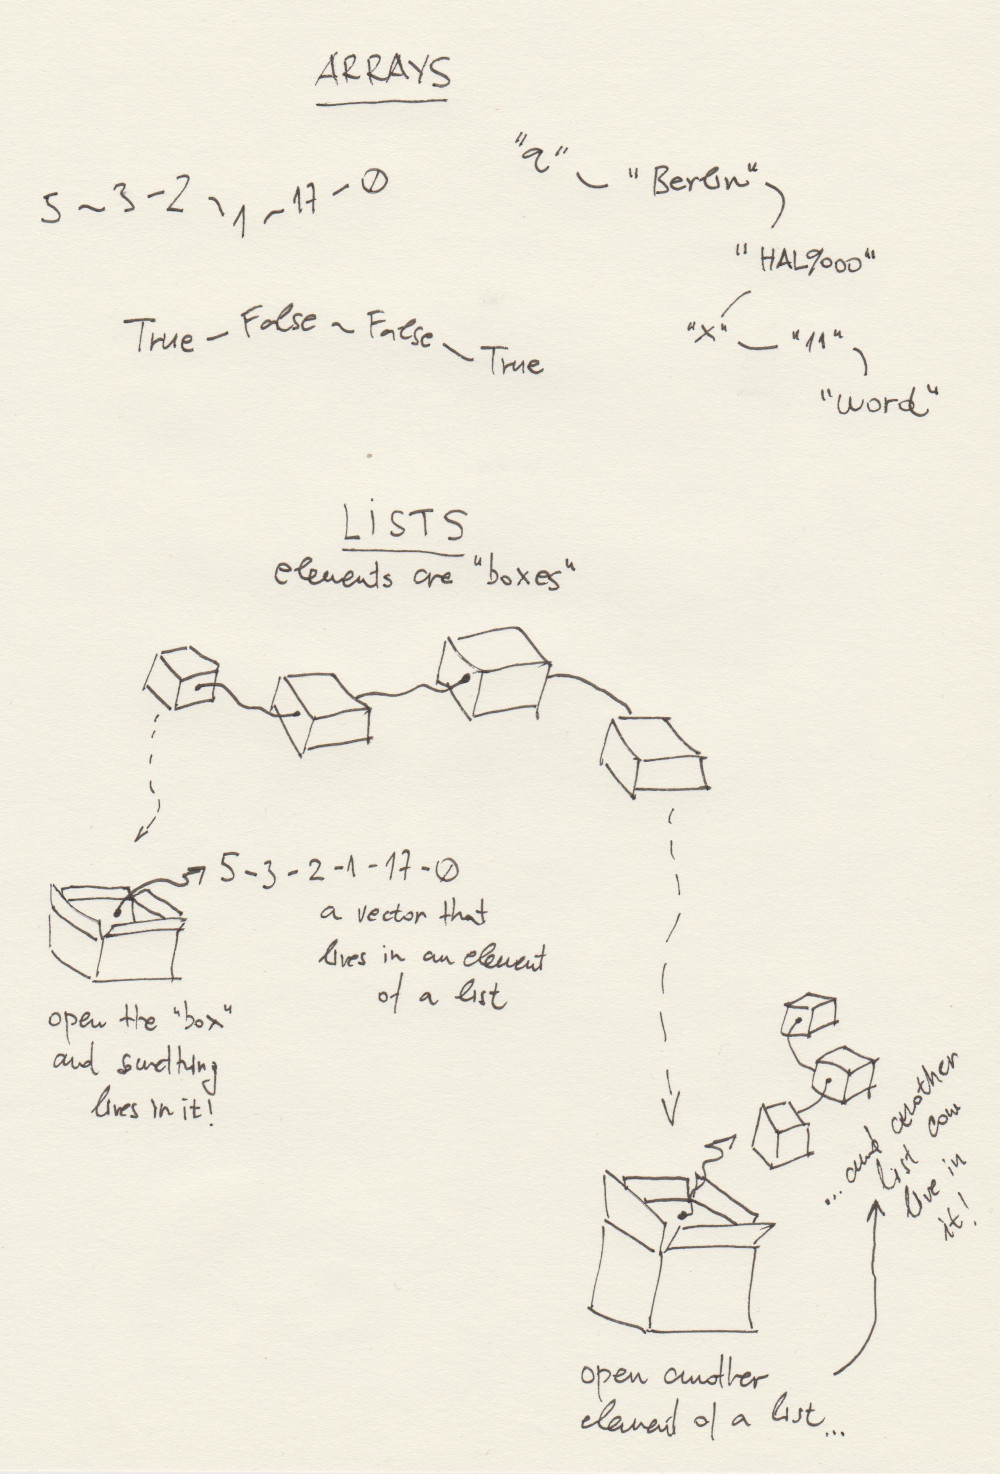 ARRAYS
5 ~ 3 - 2 ~ 1 ~ 17 - 0
"a" - "Berlin"
"HAL9000"
"x" - "11"
"word"
True - False ~ False ~ True
LiSTS
elements are "boxes"
5-3-2-1-17-0
a vector that
lives in an element
of a list
open the "box"
and something
lives in it!
...and another
list can
live in
it!
open another
element of a list...